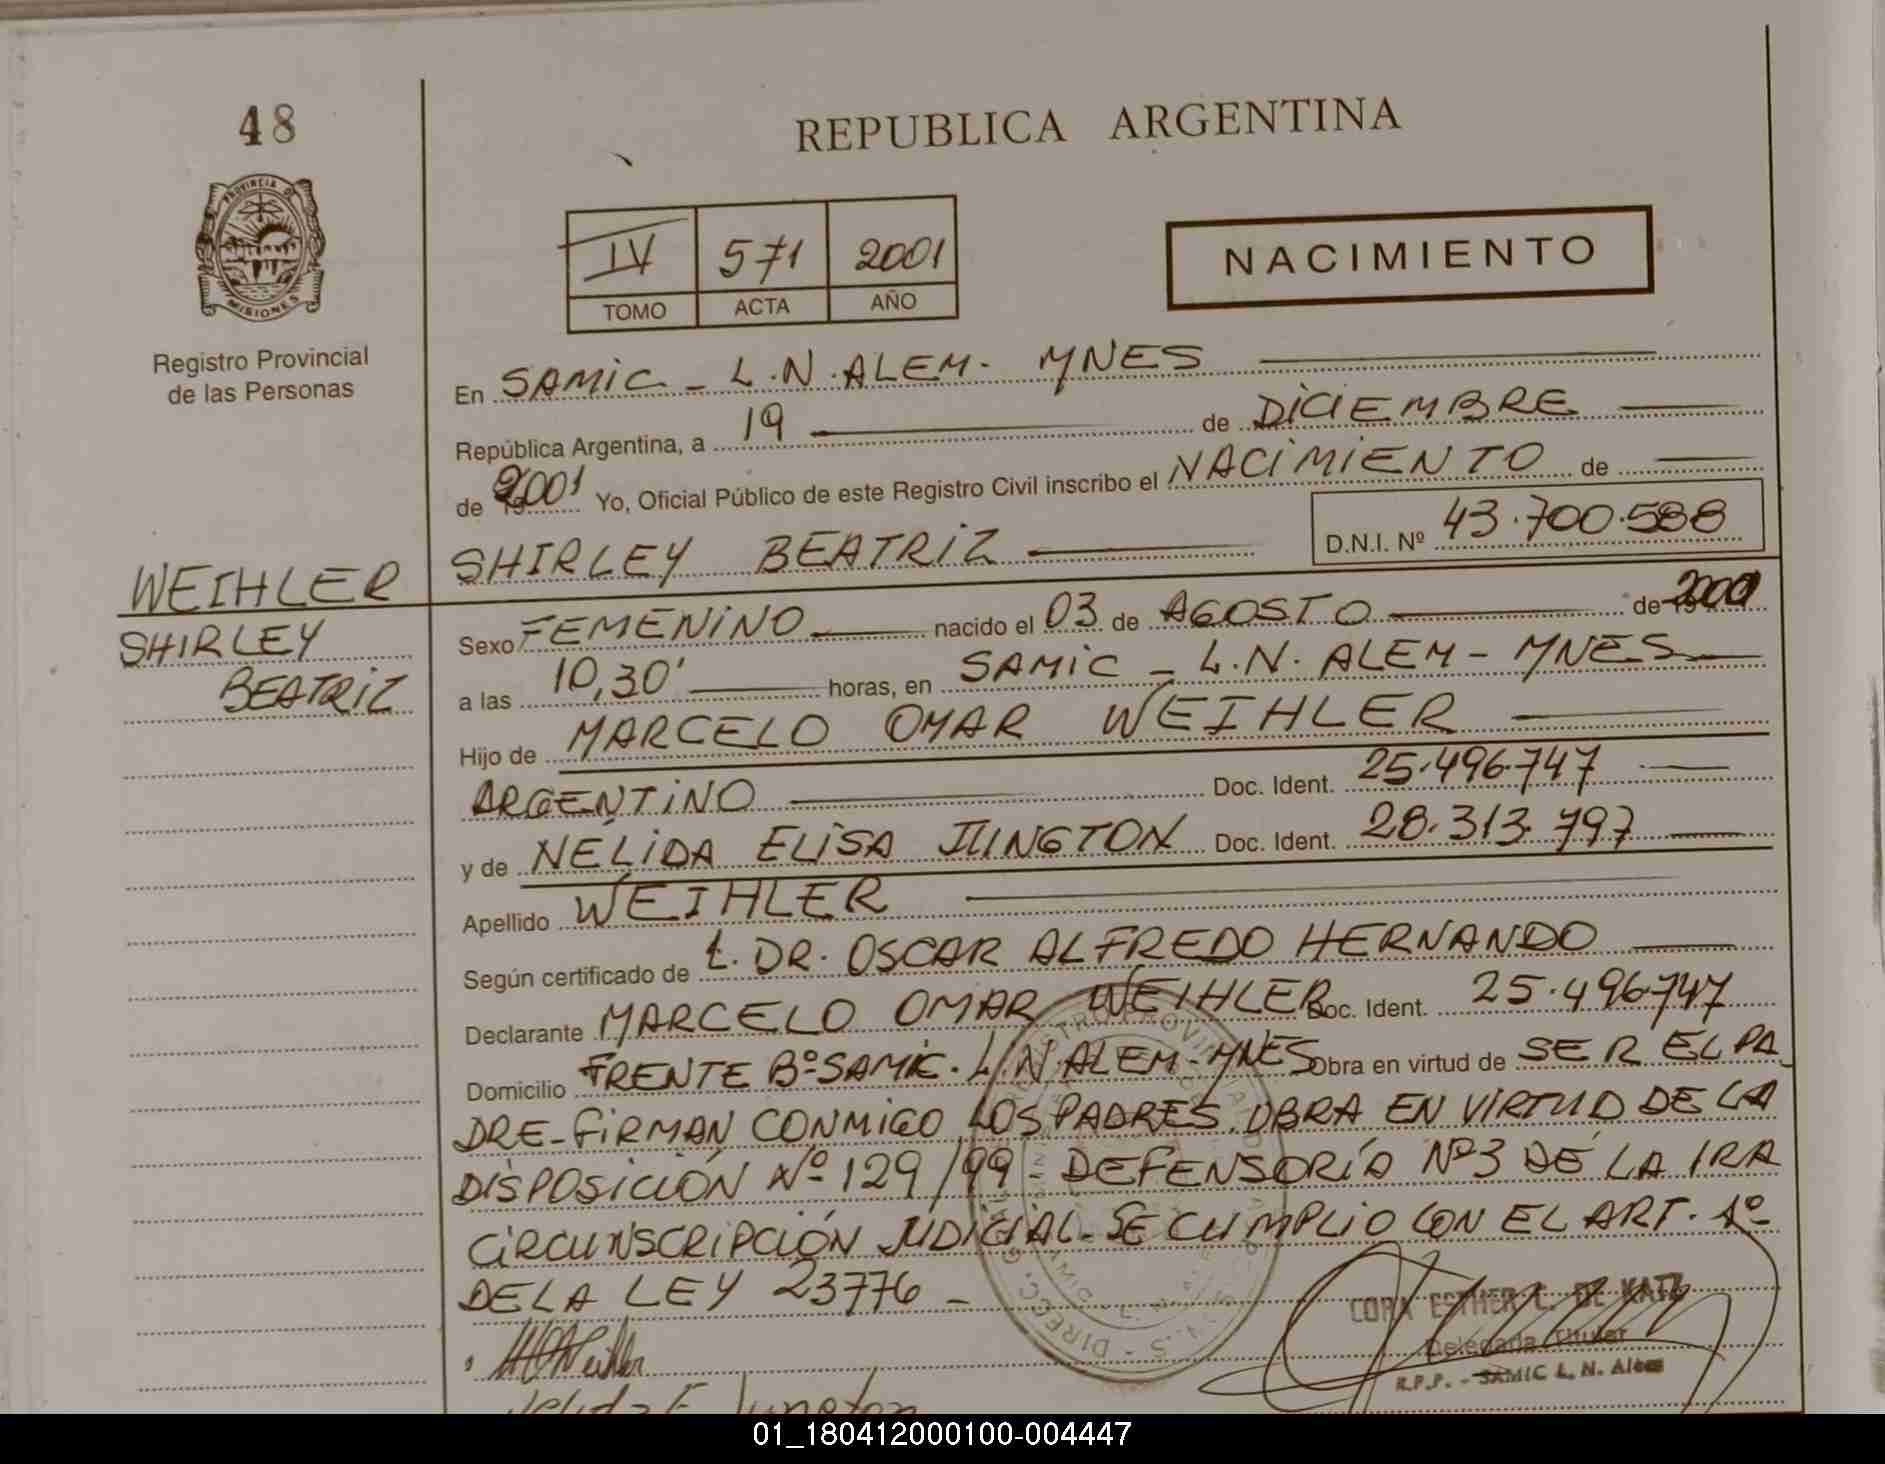 48
REPUBLICA ARGENTINA
PROVINCIA DE
MISIONES
IV 571 2001
TOMO ACTA AÑO
NACIMIENTO
Registro Provincial
de las Personas
En SAMIC - L.N.ALEM- MNES
República Argentina, a 19 de DICIEMBRE
de 2001 Yo, Oficial Público de este Registro Civil inscribo el NACIMIENTO de
SHIRLEY BEATRIZ D.N.I. Nº 43.700.588
WEIHLER
SHIRLEY
BEATRIZ
Sexo FEMENINO nacido el 03 de AGOSTO de
a las 10,30' horas, en SAMIC - L.N. ALEM - MNES
Hijo de MARCELO OMAR WEIHLER
ARGENTINO Doc. Ident. 25.496.747
y de NÉLIDA ELISA JUNGTON Doc. Ident. 28.313.797
Apellido WEIHLER
Según certificado de t. DR. OSCAR ALFREDO HERNANDO
Declarante MARCELO OMAR WEIHLER Doc. Ident. 25.496.747
Domicilio FRENTE Bº SAMIC. L.N.ALEM-MNES Obra en virtud de SER EL PA
DRE-FIRMAN CONMIGO LOS PADRES. OBRA EN VIRTUD DE LA
DISPOSICIÓN Nº 129/99 - DEFENSORÍA Nº3 DE LA IRA
CIRCUNSCRIPCIÓN JUDICIAL. SE CUMPLIO CON EL ART. 1º
DE LA LEY 23776 -
CORA ESTHER C. DE KATZ
Delegada Titular
R.P.P. - SAMIC L. N. Alem
Jungton
01_180412000100-004447